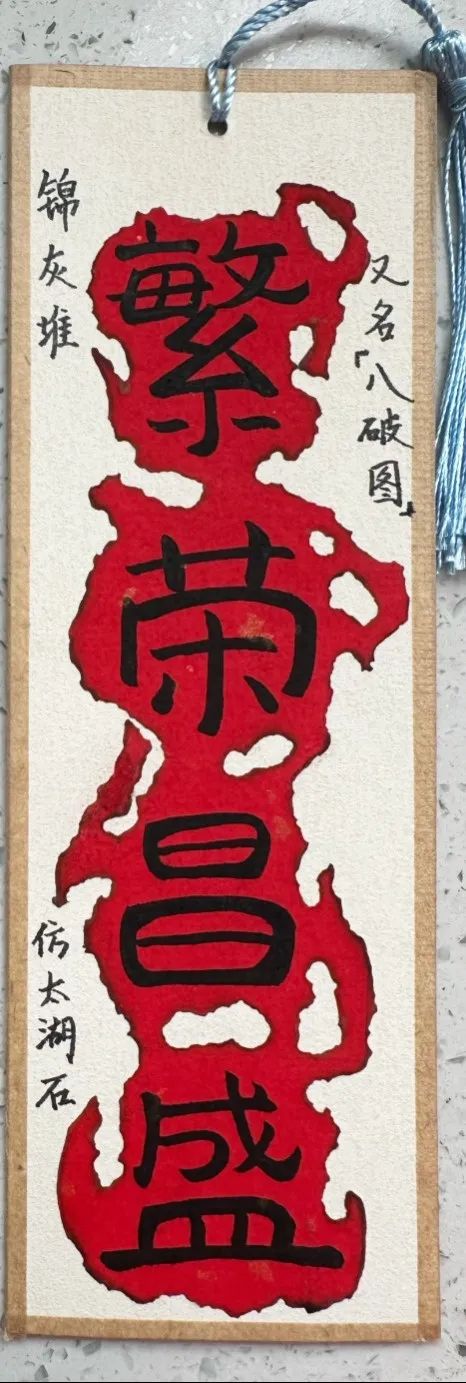 锦灰堆
又名「八破图」
繁荣昌盛
仿太湖石